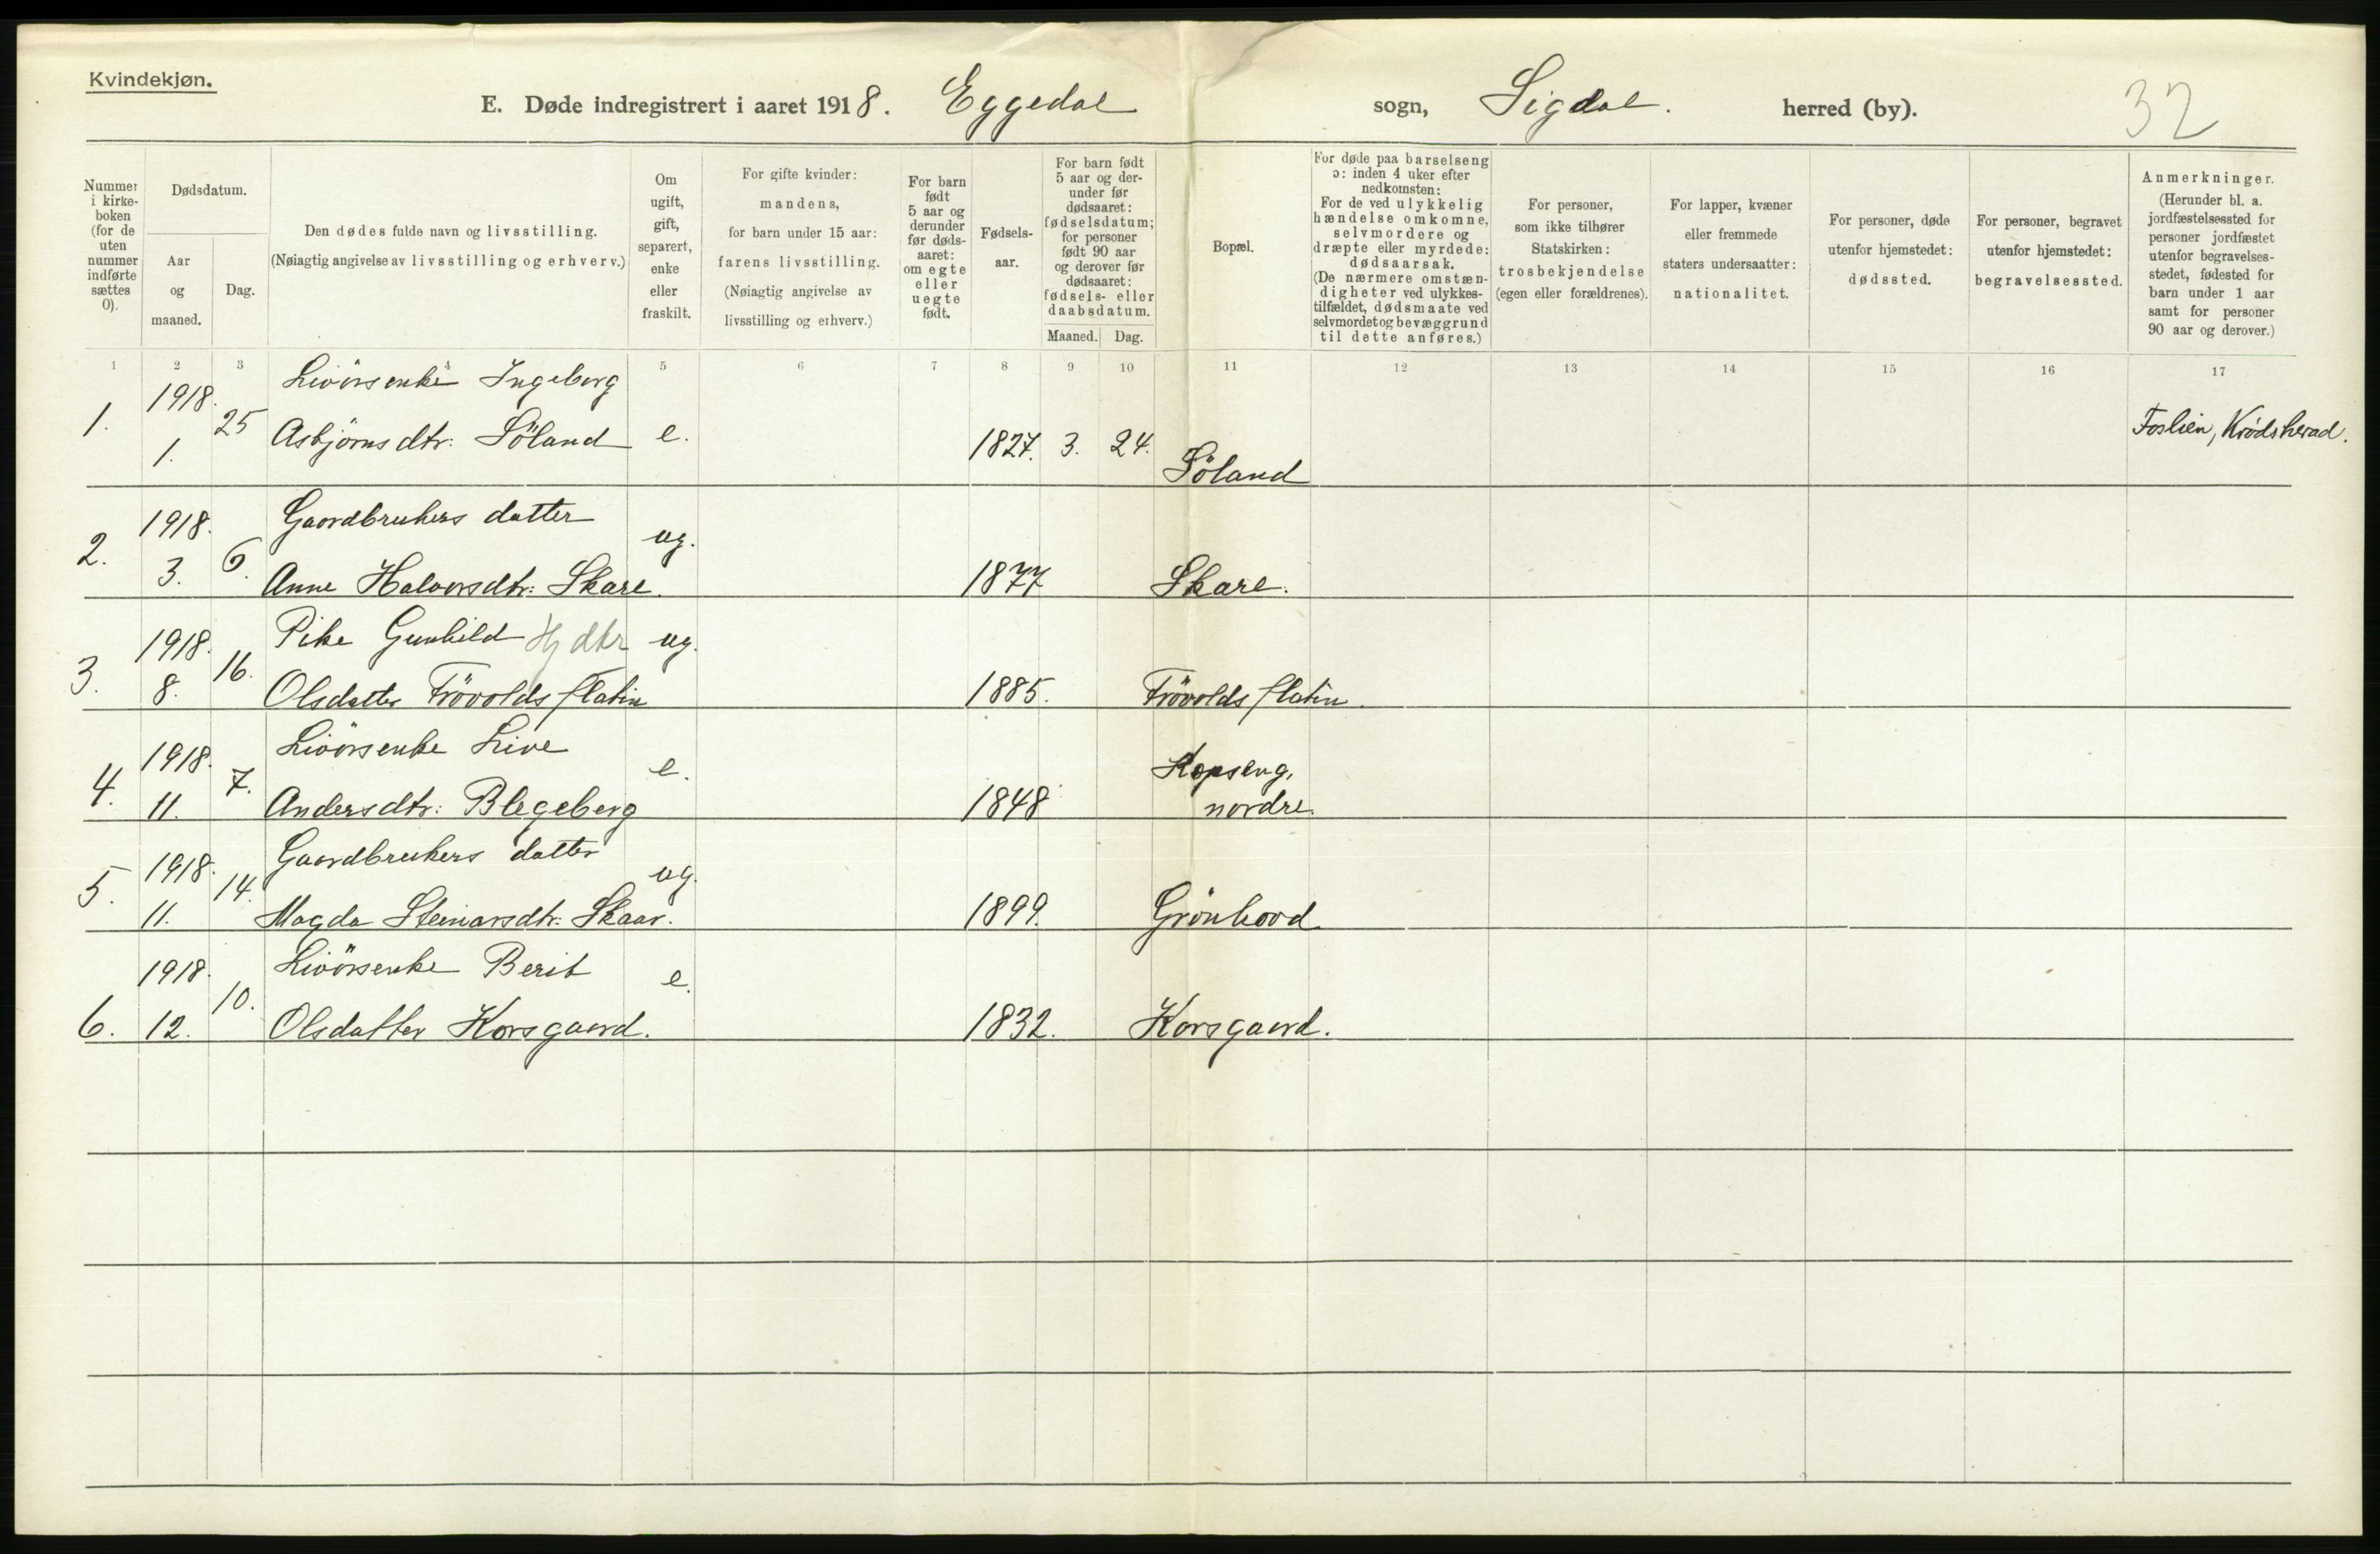 Kvindekjøn.
E. Døde indregistrert i aaret 1918. Eggedal sogn, Sigdal. herred (by).
32
Nummer i kirke-boken (for de uten nummer indførte sættes 0).
Dødsdatum.
Aar og maaned.
Dag.
Den dødes fulde navn og livsstilling.
(Nøiagtig angivelse av livsstilling og erhverv.)
Om ugift, gift, separert, enke eller fraskilt.
For gifte kvinder: mandens, for barn under 15 aar: farens livsstilling. (Nøiagtig angivelse av livsstilling og erhverv.)
For barn født 5 aar og derunder før døds-aaret: om egte eller uegte født.
Fødsels-aar.
For barn født 5 aar og der-under før dødsaaret: fødselsdatum; for personer født 90 aar og derover før dødsaaret: fødsels- eller daabsdatum.
Maaned. Dag.
Bopæl.
For døde paa barselseng ɔ: inden 4 uker efter nedkomsten: For de ved ulykkelig hændelse omkomne, selvmordere og dræpte eller myrdede: dødsaarsak. (De nærmere omstæn-digheter ved ulykkes-tilfældet, dødsmaate ved selvmordet og bevæggrund til dette anføres.)
For personer, som ikke tilhører Statskirken: trosbekjendelse (egen eller forældrenes).
For lapper, kvæner eller fremmede staters undersaatter: nationalitet.
For personer, døde utenfor hjemstedet: dødssted.
For personer, begravet utenfor hjemstedet: begravelsessted.
Anmerkninger. (Herunder bl. a. jordfæstelsessted for personer jordfæstet utenfor begravelses-stedet, fødested for barn under 1 aar samt for personer 90 aar og derover.)
1 2 3 4 5 6 7 8 9 10 11 12 13 14 15 16 17
1. 1918. 1. 25 Livörsenke Ingeborg
Asbjörnsdtr: Söland e. 1827. 3. 24. Söland Foslien, Krødsherad.
2. 1918. 3. 6. Gaardbrukers datter
Anne Halvorsdtr: Skare. ug. 1877 Skare.
3. 1918. 8. 16. Pike Gunhild Hj dtr ug.
Olsdatter Frövolds flatin 1885. Frövolds flatin.
4. 1918. 11. 7. Livörsenke Live e.
Andersdtr: Blegeberg 1848 Kopseng, nordre.
5. 1918. 11. 14. Gaardbrukers datter ug.
Magda Steinarsdtr: Skaar. 1899. Grönhovd
6. 1918. 12. 10. Livörsenke Berit e.
Olsdatter Korsgaard. 1832. Korsgaard.